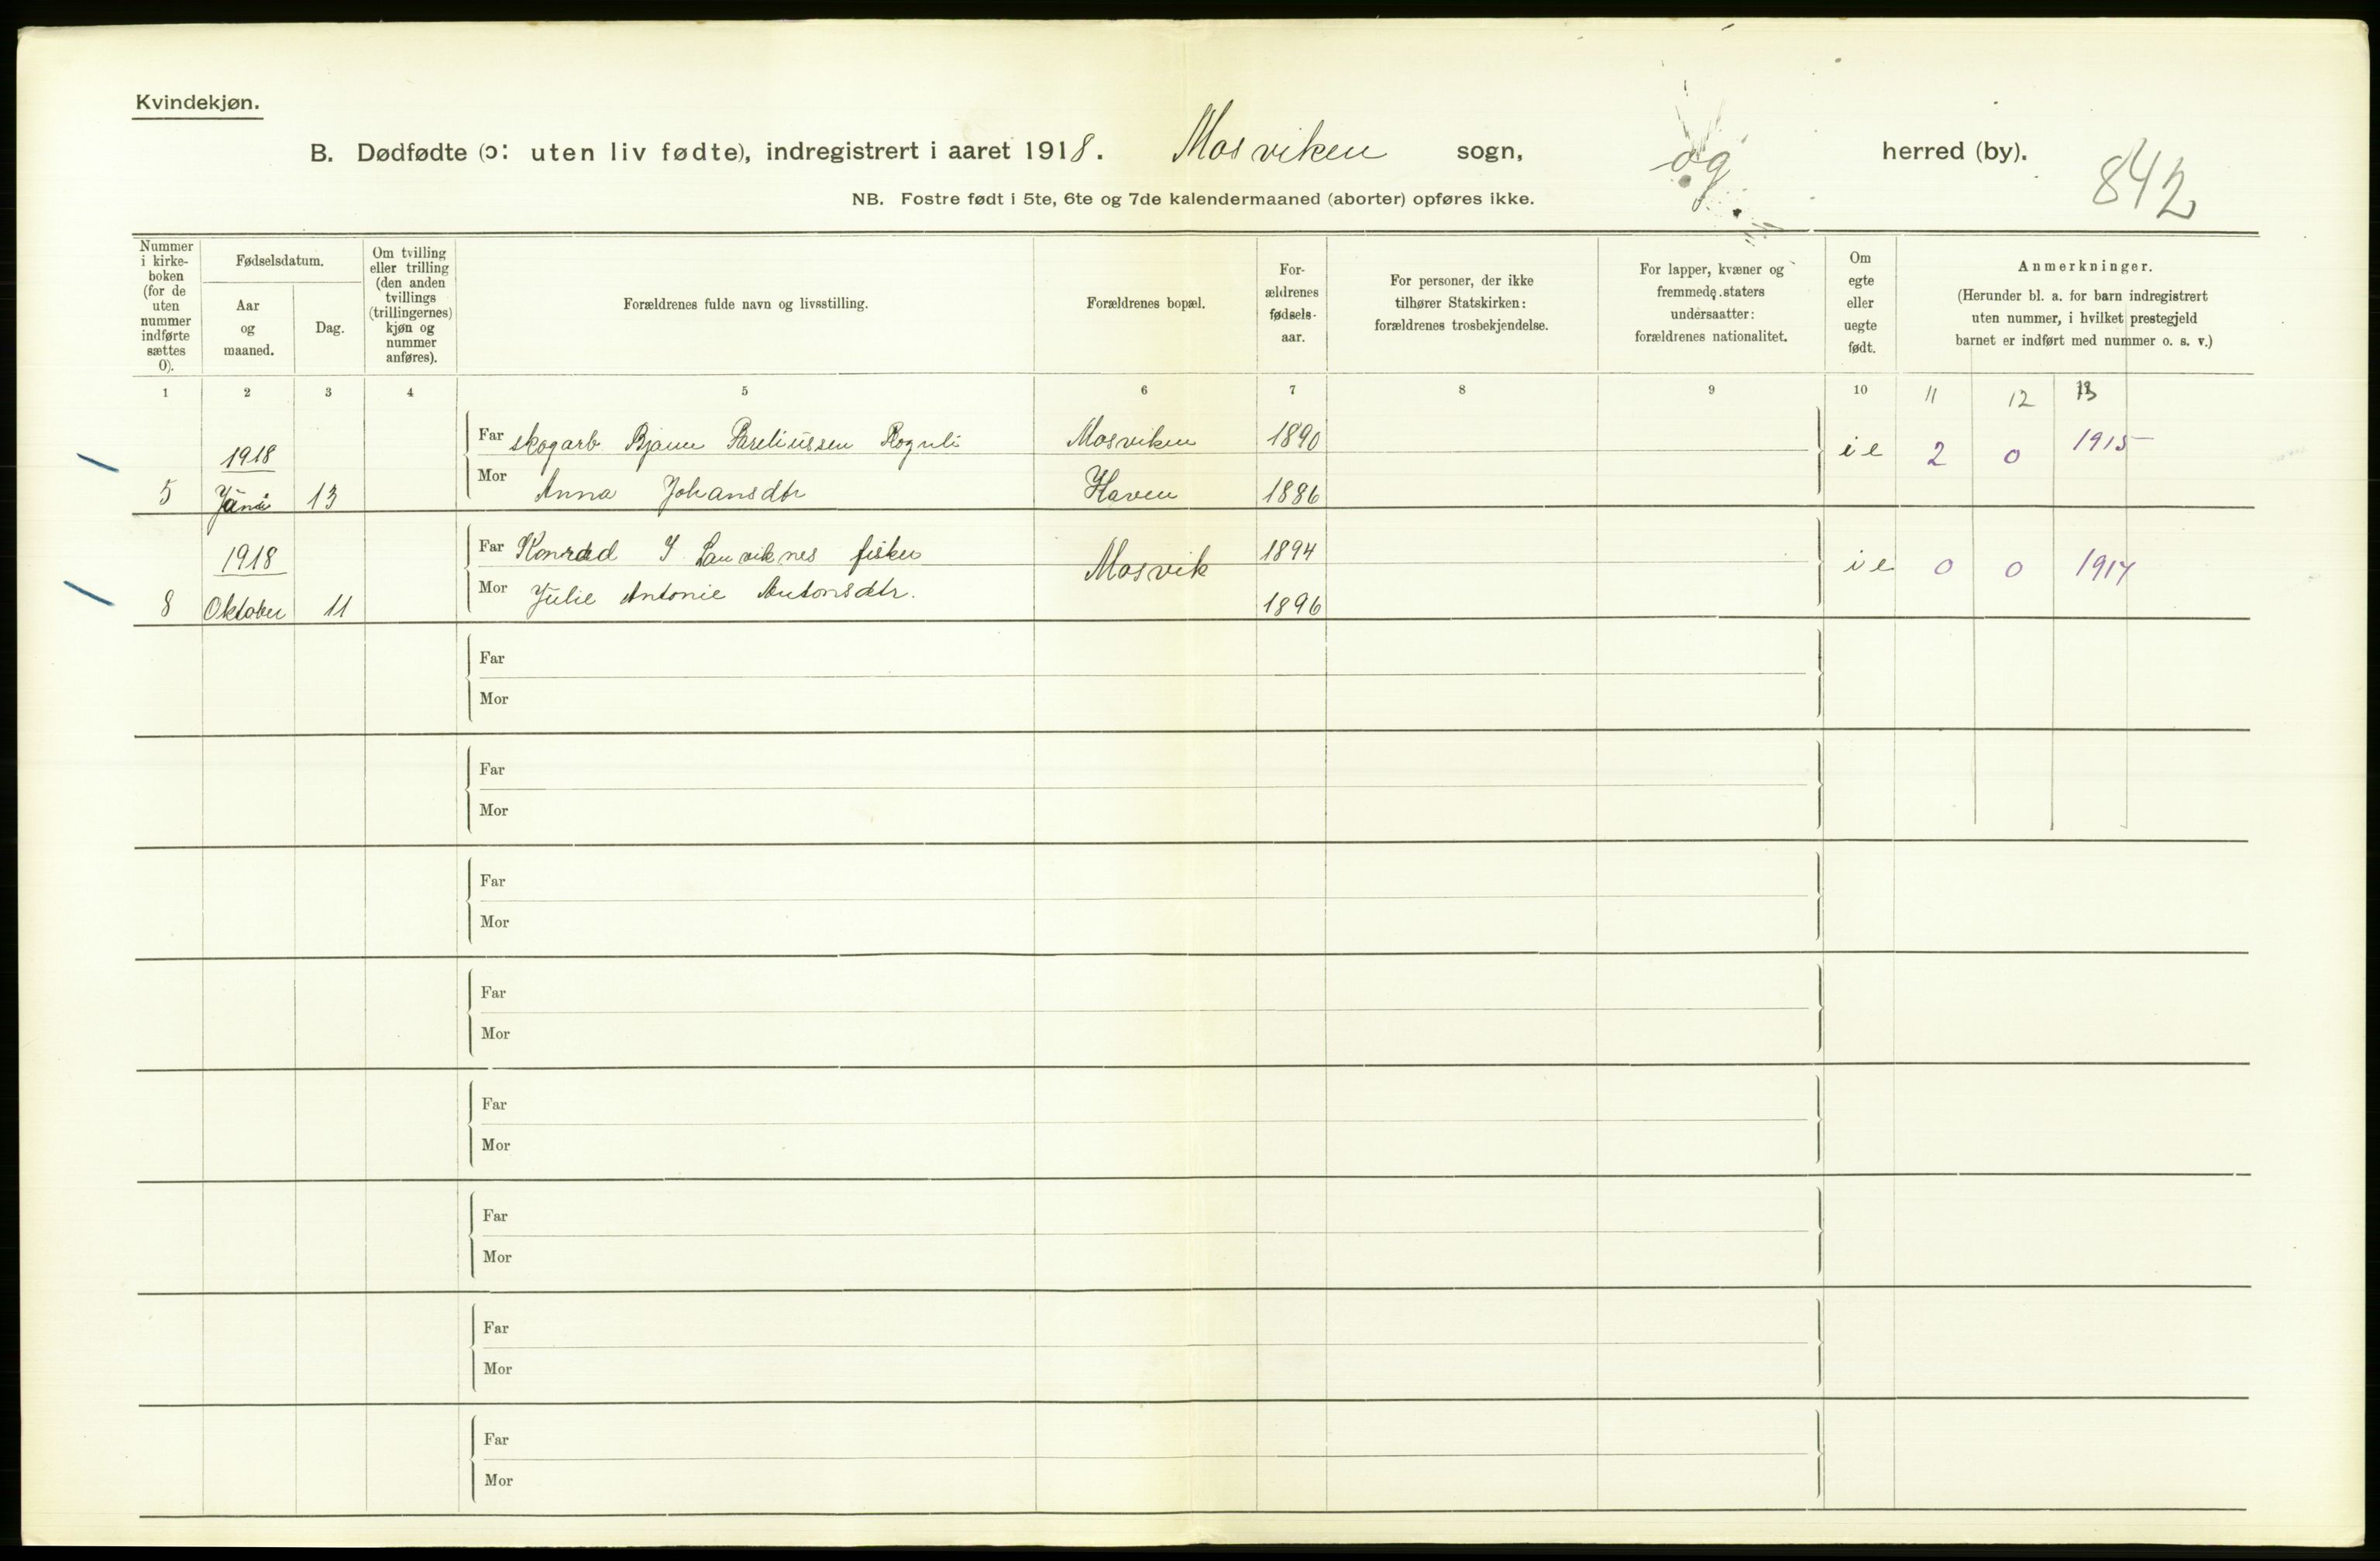 Kvindekjøn.
B. Dødfødte (ɔ: uten liv fødte), indregistrert i aaret 1918. Mosviken sogn, og herred (by).
842
NB. Fostre født i 5te, 6te og 7de kalendermaaned (aborter) opføres ikke.
Nummer
i kirke-
boken
(for de
uten
nummer
indførte
sættes
0).
Fødselsdatum.
Aar
og
maaned.
Dag.
Om tvilling
eller trilling
(den anden
tvillings
(trillingernes)
kjøn og
nummer
anføres).
Forældrenes fulde navn og livsstilling.
Forældrenes bopæl.
For-
ældrenes
fødsels-
aar.
For personer, der ikke
tilhører Statskirken:
forældrenes trosbekjendelse.
For lapper, kvæner og
fremmede staters
undersaatter:
forældrenes nationalitet.
Om
egte
eller
uegte
født.
Anmerkninger.
(Herunder bl. a. for barn indregistrert
uten nummer, i hvilket prestegjeld
barnet er indført med nummer o. s. v.)
1 2 3 4 5 6 7 8 9 10 11 12 13
1918
Far skogarb. Mosviken 1890 i e 2 0 1915
5 13 Mor Anna Johansdtr Haven 1886
1918
Far Konrad fisker Mosvik 1894 i e 0 0 1917
8 Oktober 11 Mor Julie Antonie Antonsdtr. 1896
Far
Mor
Far
Mor
Far
Mor
Far
Mor
Far
Mor
Far
Mor
Far
Mor
Far
Mor